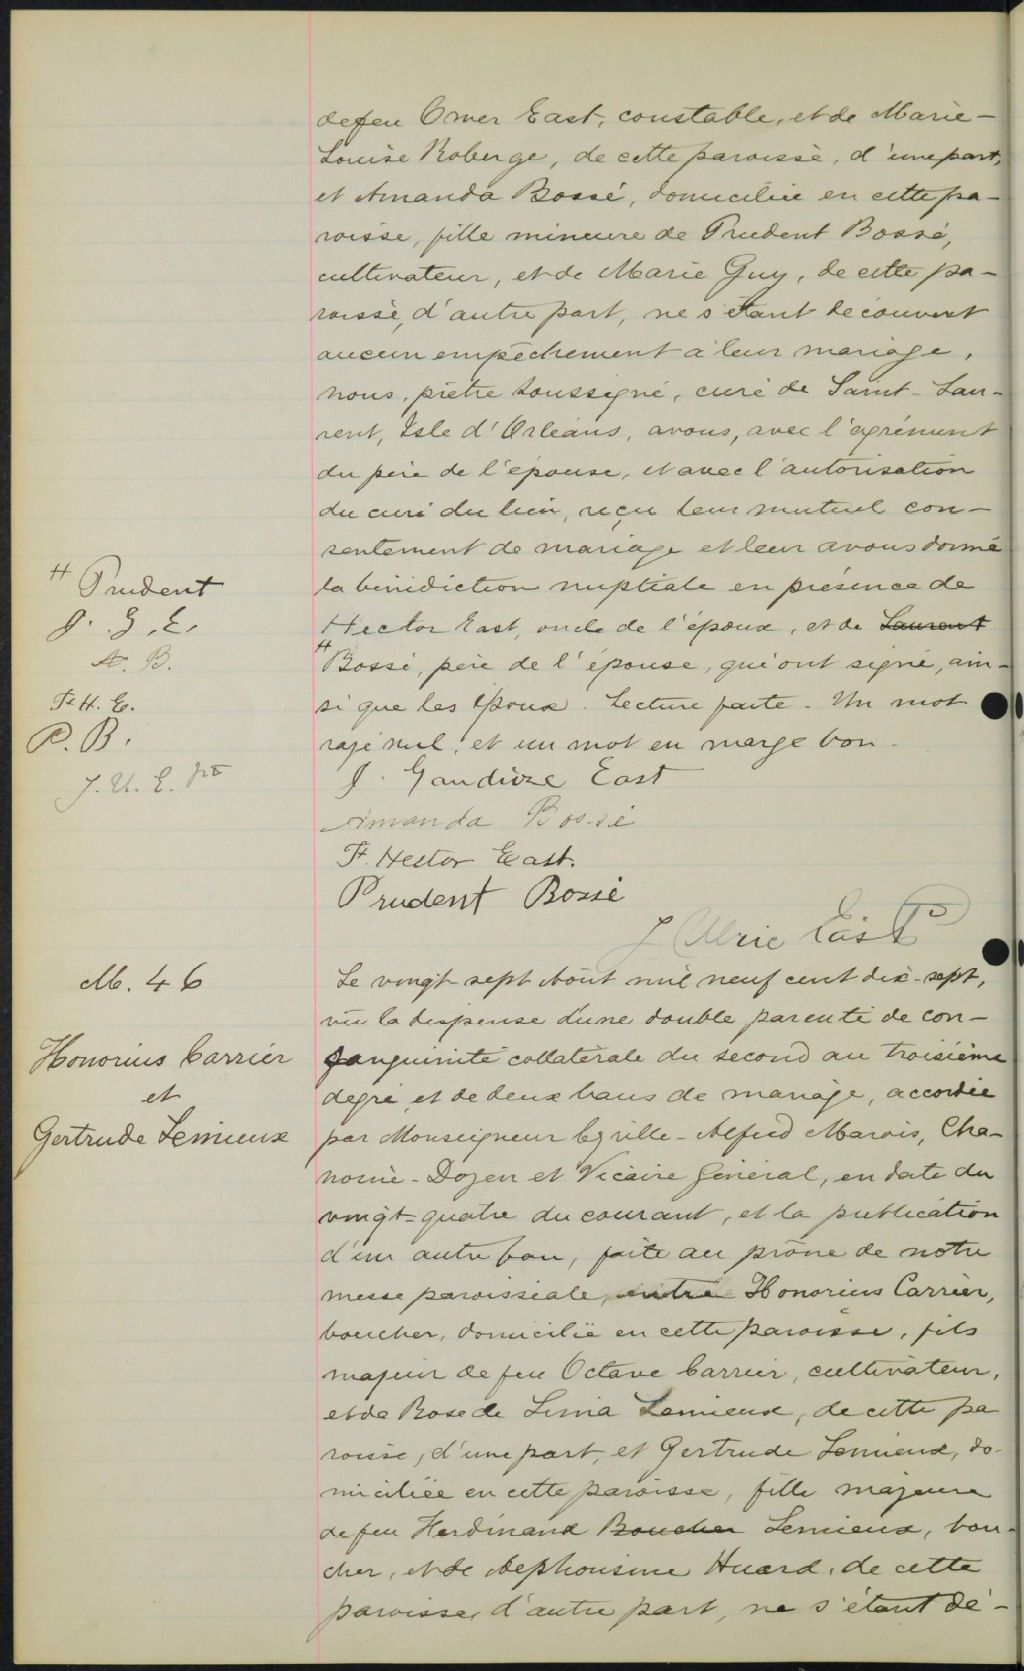 de feu Omer East, constable, et de Marie-
Louise Roberge, de cette paroisse, d'une part,
et Amanda Bossé, domiciliée en cette pa-
roisse, fille mineure de Prudent Bossé,
cultivateur, et de Marie Guy, de cette pa-
roisse, d'autre part, ne s'étant découvert
aucun empêchement à leur mariage,
nous, prêtre soussigné, curé de Saint-Lau-
rent, Isle d'Orléans, avons, avec l'agrément
du père de l'épouse, et avec l'autorisation
du curé du lieu, reçu leur mutuel con-
sentement de mariage et leur avons donné
la bénédiction nuptiale en présence de
Hector East, oncle de l'époux, et de Laurent
# Bossé, père de l'épouse, qui ont signé, ain-
si que les époux. Lecture faite. Un mot
rayé nul, et un mot en marge bon.
# Prudent
J. G. E.
A. B.
F. H. E.
P. B.
J. U. E. ptre
J. Gaudioze East
Amanda Bossé
F. Hector East.
Prudent Bossé
J Ulric East
M. 46
Honorius Carrier
et
Gertrude Lemieux
Le vingt-sept Août mil neuf cent dix-sept,
vu la dispense d'une double parenté de con-
sanguinité collatérale du second au troisième
degré et de deux bans de mariage, accordée
par Monseigneur Cyrille-Alfred Marois, Cha-
noine-Doyen et Vicaire Général, en date du
vingt-quatre du courant, et la publication
d'un autre ban, faite au prône de notre
messe paroissiale, entre Honorius Carrier,
boucher, domicilié en cette paroisse, fils
majeur de feu Octave Carrier, cultivateur,
et de Rose de Lima Lemieux, de cette pa
roisse, d'une part, et Gertrude Lemieux, do-
miciliée en cette paroisse, fille majeure
de feu Ferdinand Boucher Lemieux, bou-
cher, et de Alphonsine Huard, de cette
paroisse, d'autre part, ne s'étant dé-